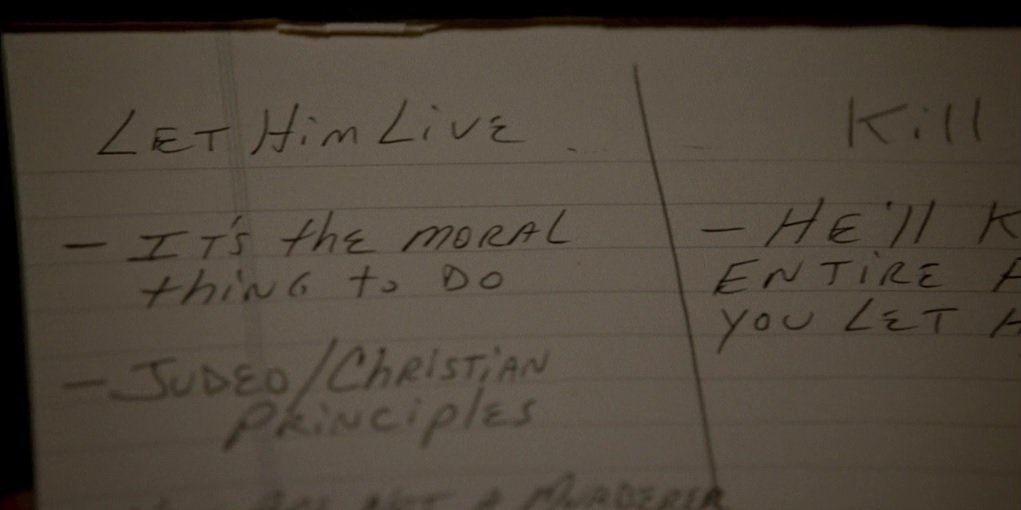 LET Him LivE
Kill
- IT's thE MORAL
thiNG to DO
- HE'll K
ENTiRE
YOU LET
- JUDEO/ChRiSTiAN
PRiNCiplES
NOT A MURDERER